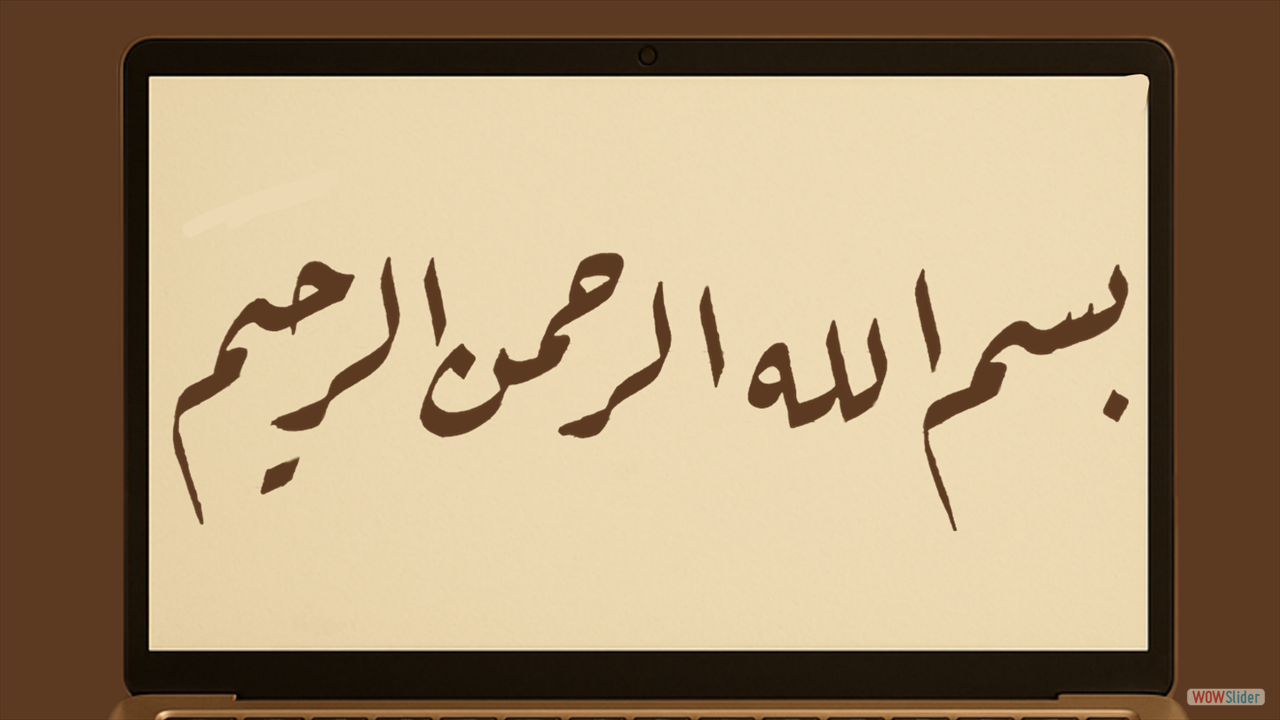 بسم الله الرحمن الرحيم
WOWSlider